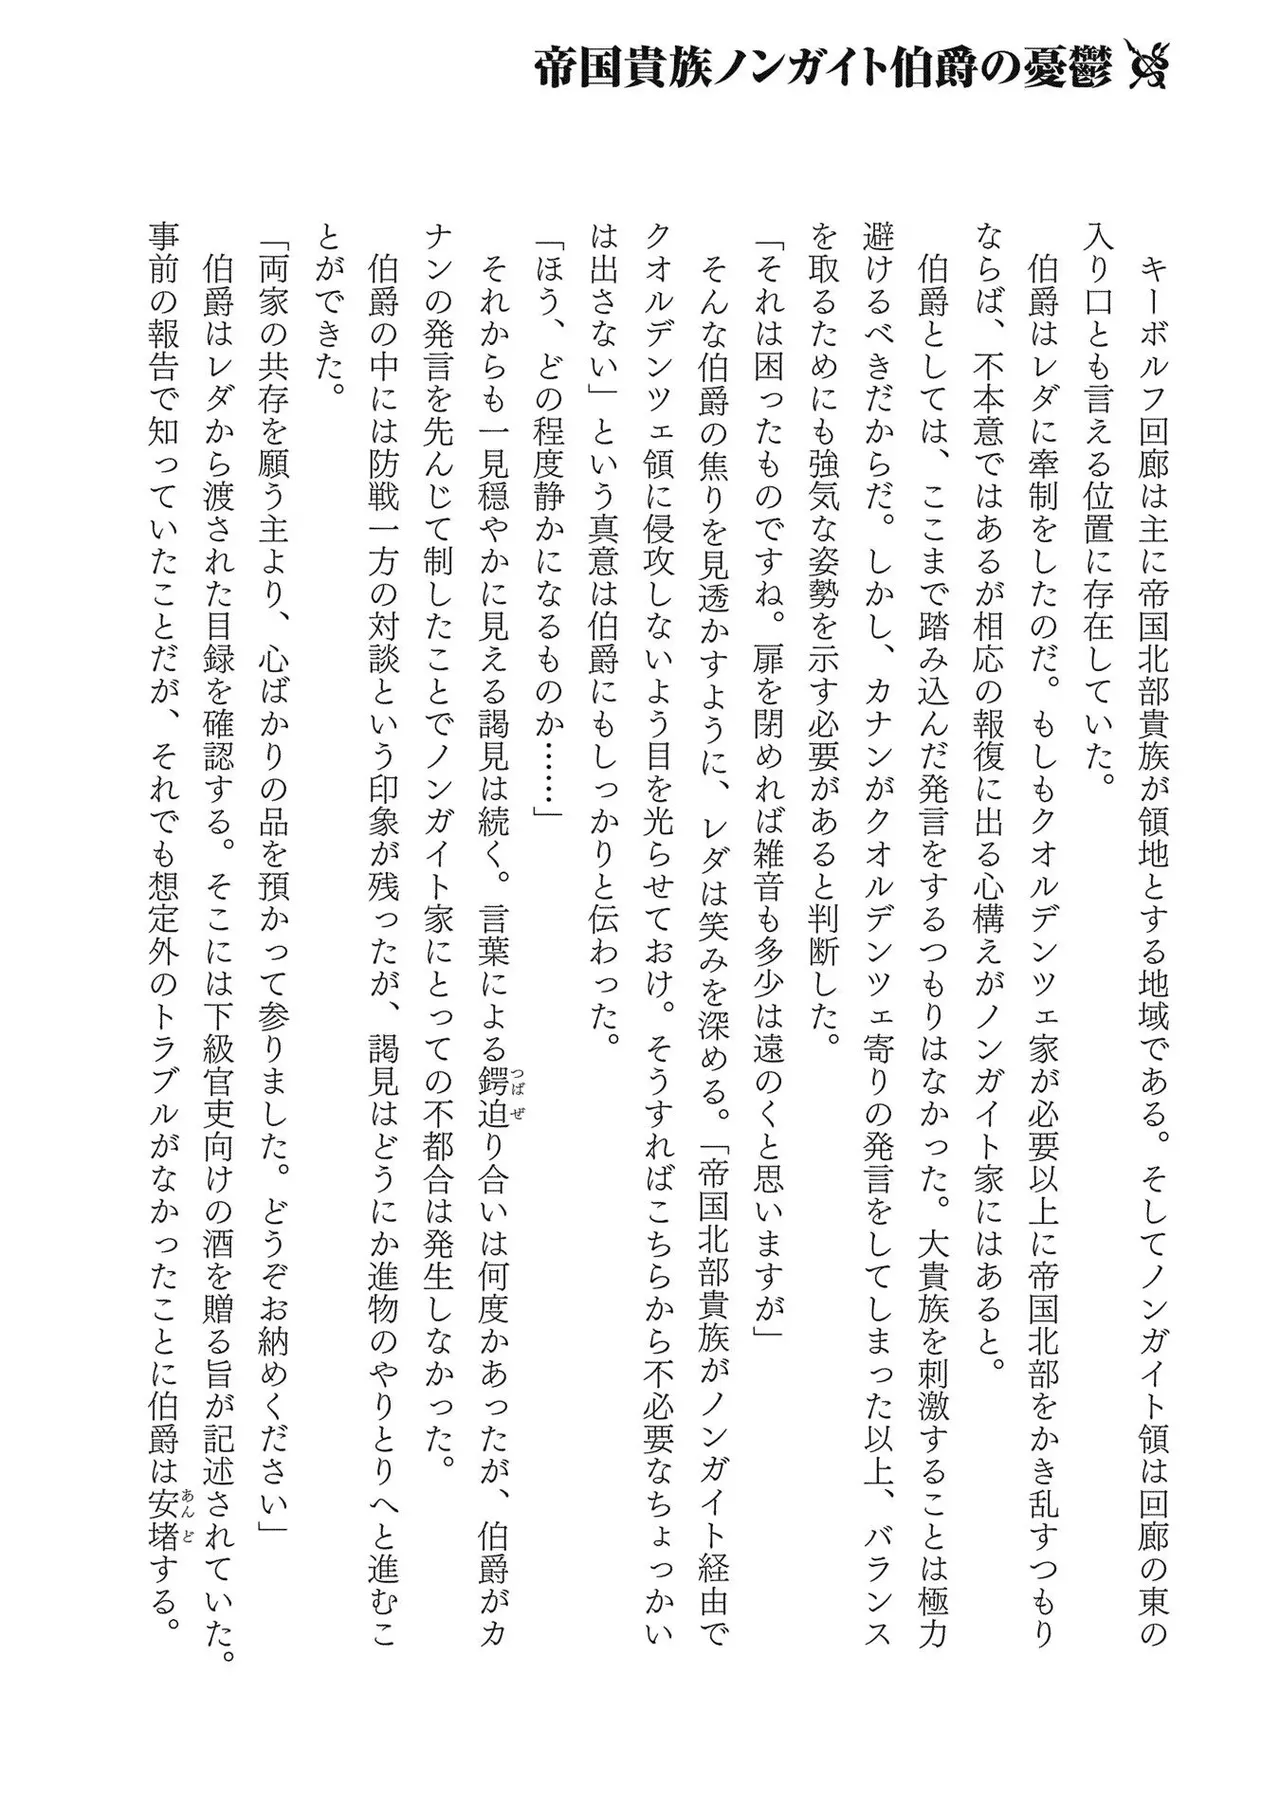 帝国貴族ノンガイト伯爵の憂鬱
キーボルフ回廊は主に帝国北部貴族が領地とする地域である。そしてノンガイト領は回廊の東の
入り口とも言える位置に存在していた。
伯爵はレダに牽制をしたのだ。もしもクオルデンツェ家が必要以上に帝国北部をかき乱すつもり
ならば、不本意ではあるが相応の報復に出る心構えがノンガイト家にはあると。
伯爵としては、ここまで踏み込んだ発言をするつもりはなかった。大貴族を刺激することは極力
避けるべきだからだ。しかし、カナンがクオルデンツェ寄りの発言をしてしまった以上、バランス
を取るためにも強気な姿勢を示す必要があると判断した。
「それは困ったものですね。扉を閉めれば雑音も多少は遠のくと思いますが」
そんな伯爵の焦りを見透かすように、レダは笑みを深める。「帝国北部貴族がノンガイト経由で
クオルデンツェ領に侵攻しないよう目を光らせておけ。そうすればこちらから不必要なちょっかい
は出さない」という真意は伯爵にもしっかりと伝わった。
「ほう、どの程度静かになるものか……」
それからも一見穏やかに見える謁見は続く。言葉による鍔迫り合いは何度かあったが、伯爵がカ
ナンの発言を先んじて制したことでノンガイト家にとっての不都合は発生しなかった。
伯爵の中には防戦一方の対談という印象が残ったが、謁見はどうにか進物のやりとりへと進むこ
とができた。
「両家の共存を願う主より、心ばかりの品を預かって参りました。どうぞお納めください」
伯爵はレダから渡された目録を確認する。そこには下級官吏向けの酒を贈る旨が記述されていた。
事前の報告で知っていたことだが、それでも想定外のトラブルがなかったことに伯爵は安堵する。